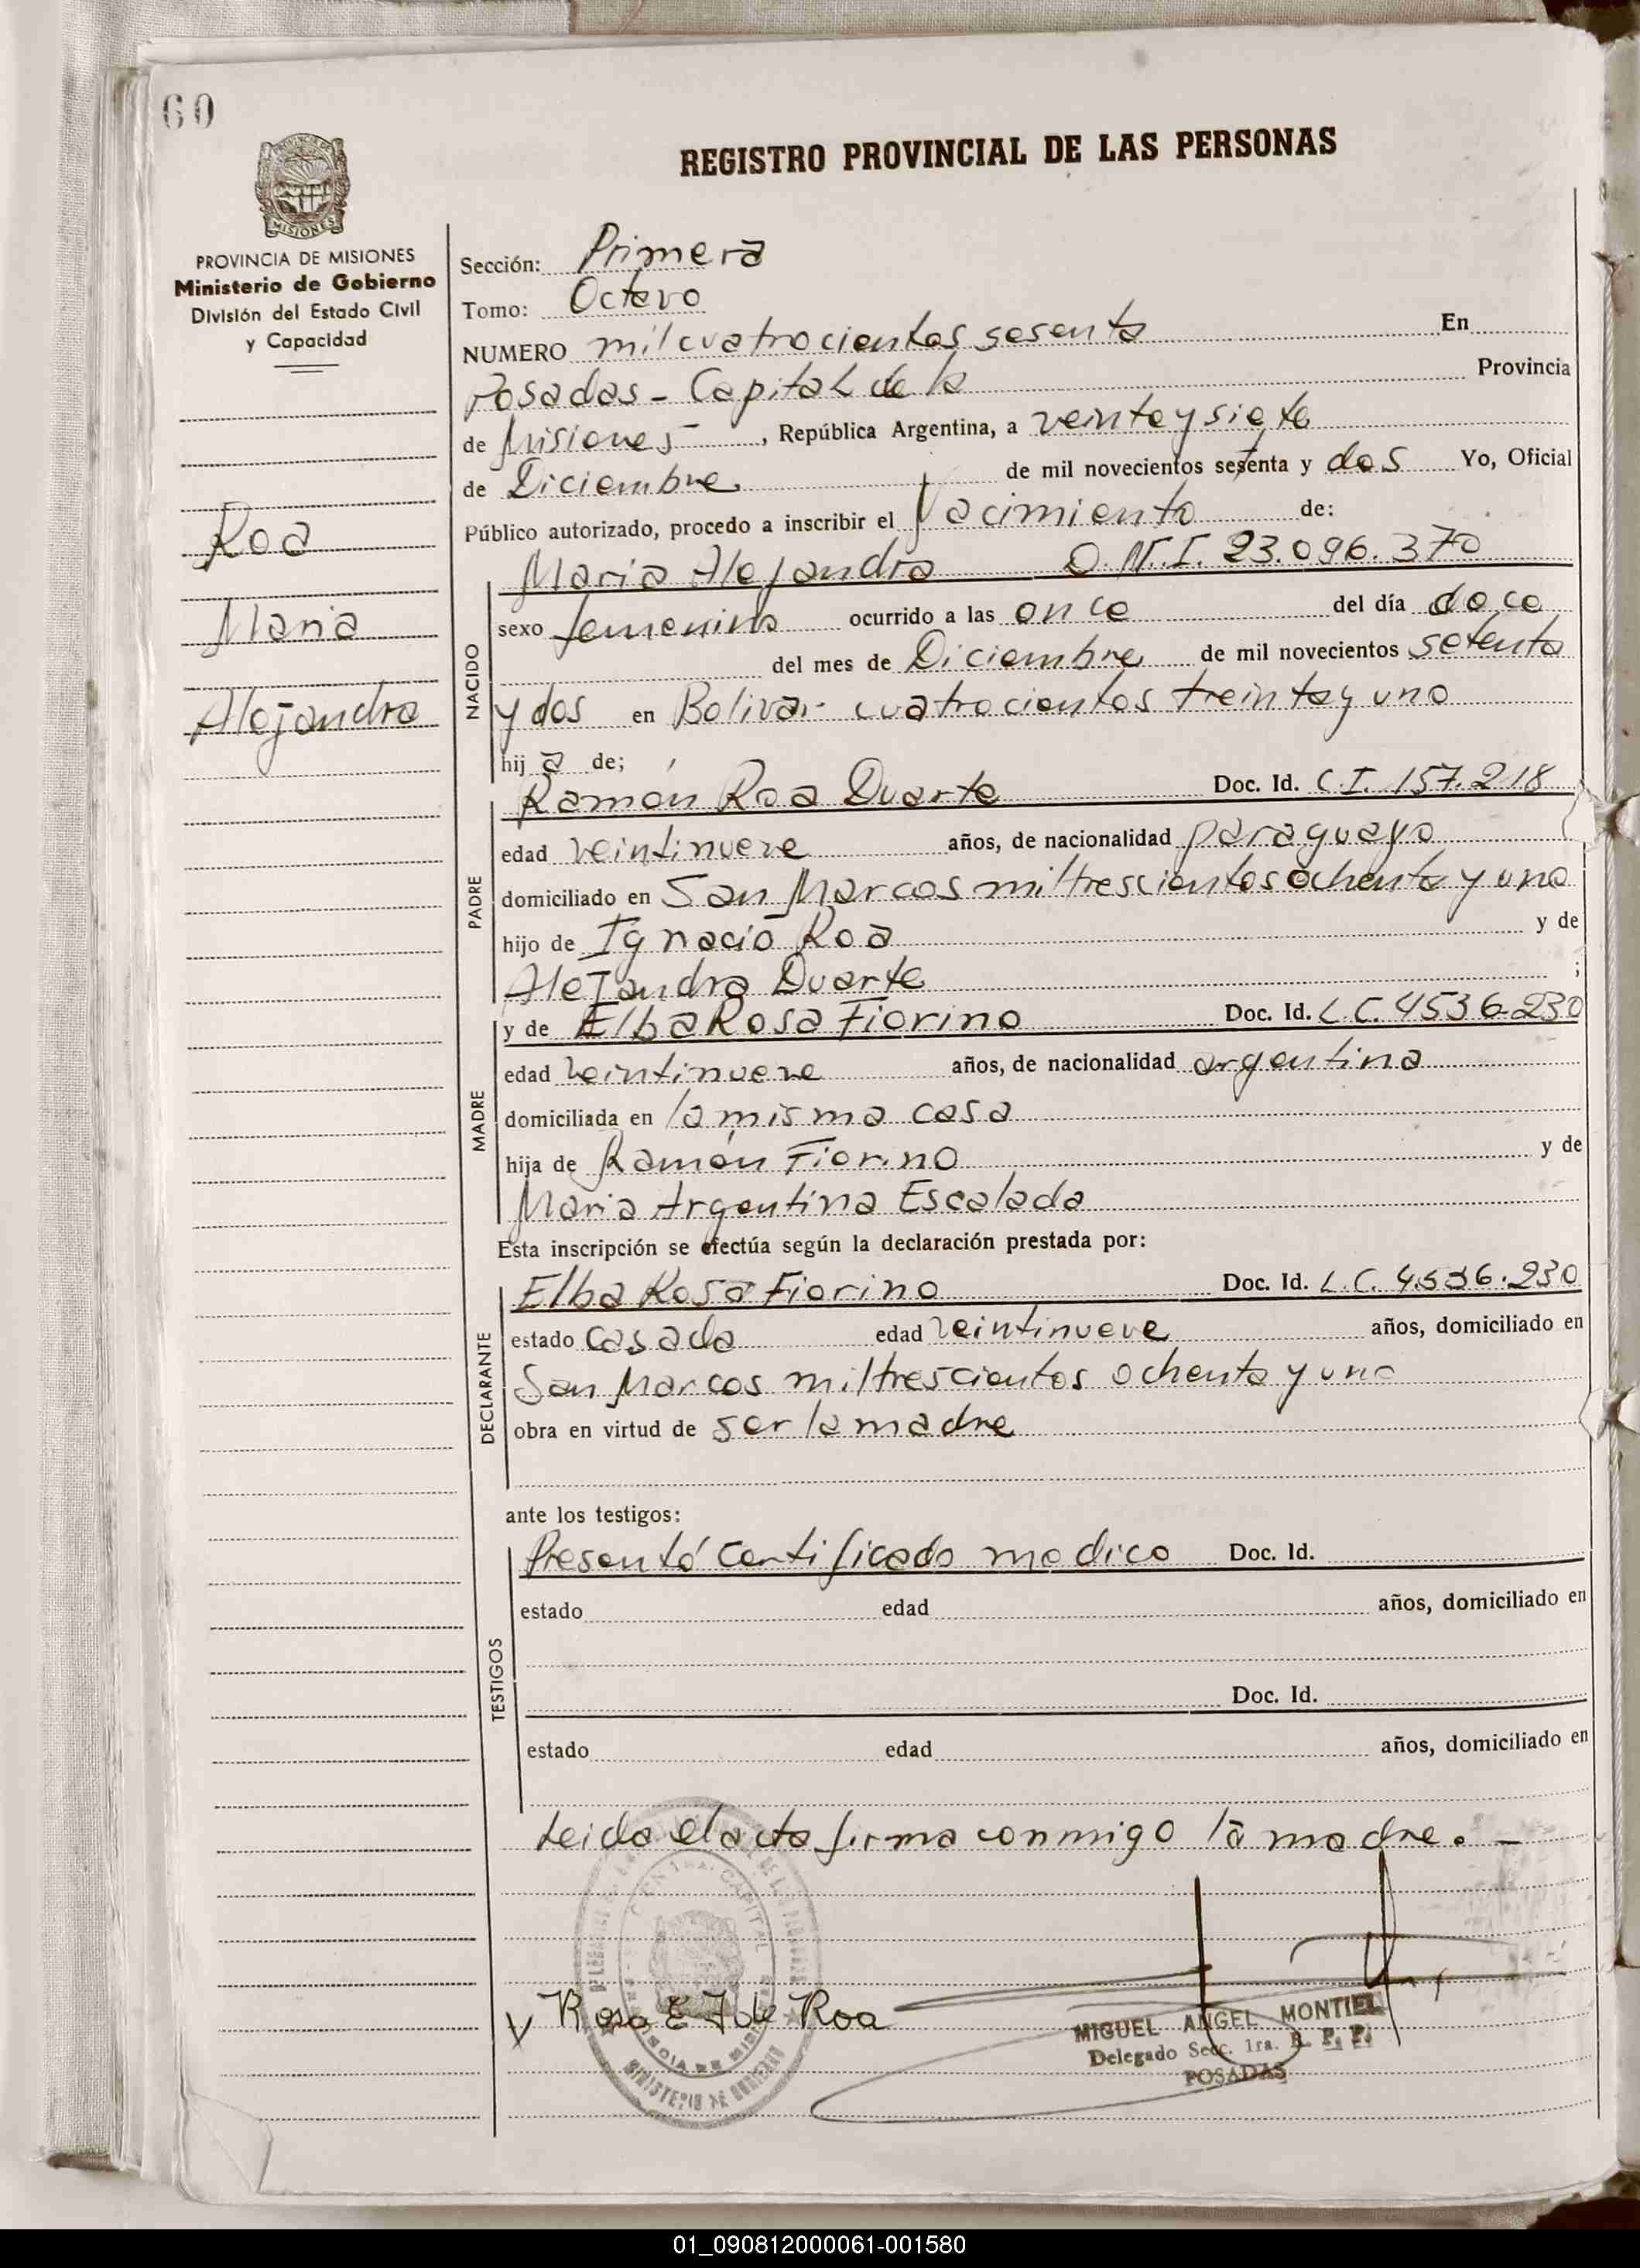 60
REGISTRO PROVINCIAL DE LAS PERSONAS
MISIONES
PROVINCIA DE MISIONES
Ministerio de Gobierno
División del Estado Civil
y Capacidad
Roa
Maria
Alejandra
Sección: Primera
Tomo: Octavo
NUMERO mil cuatrocientos sesenta En
Posadas - Capital de la Provincia
de Misiones, República Argentina, a veinte y siete
de Diciembre de mil novecientos setenta y dos Yo, Oficial
Público autorizado, procedo a inscribir el Nacimiento de:
NACIDO
Maria Alejandra D.N.I. 23.096.370
sexo femenino ocurrido a las once del día doce
del mes de Diciembre de mil novecientos setenta
y dos en Bolivar cuatrocientos treinta y uno
hij a de;
PADRE
Ramón Roa Duarte Doc. Id. C.I. 157.218
edad veintinueve años, de nacionalidad paraguayo
domiciliado en San Marcos mil trescientos ochenta y uno
hijo de Ignacio Roa y de
Alejandra Duarte ;
MADRE
y de Elba Rosa Fiorino Doc. Id. L.C. 4536.230
edad veintinueve años, de nacionalidad argentina
domiciliada en la misma casa
hija de Ramón Fiorino y de
Maria Argentina Escalada
Esta inscripción se efectúa según la declaración prestada por:
DECLARANTE
Elba Rosa Fiorino Doc. Id. L.C. 4.536.230
estado casada edad veintinueve años, domiciliado en
San Marcos mil trescientos ochenta y uno
obra en virtud de ser la madre
ante los testigos:
TESTIGOS
Presentó certificado medico Doc. Id.
estado edad años, domiciliado en
Doc. Id.
estado edad años, domiciliado en
Leida el acta firma conmigo la madre. -
CAPITAL
MINISTERIO DE GOBIERNO
Rosa E F de Roa
MIGUEL ANGEL MONTIEL
Delegado Secc. 1ra. R. P. P.
POSADAS
01_090812000061-001580